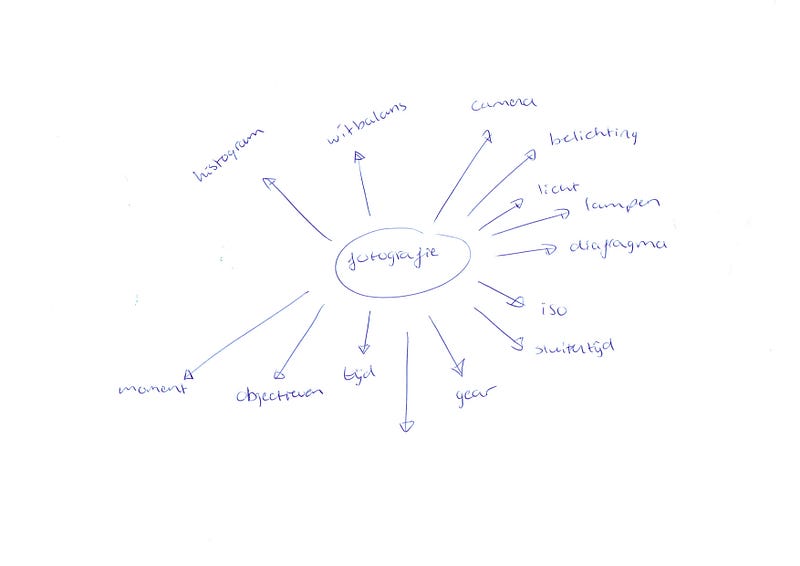 camera
witbalans
belichting
histogram
licht
lampen
fotografie
diafragma
iso
sluitertijd
tijd
moment
objectieven
gear